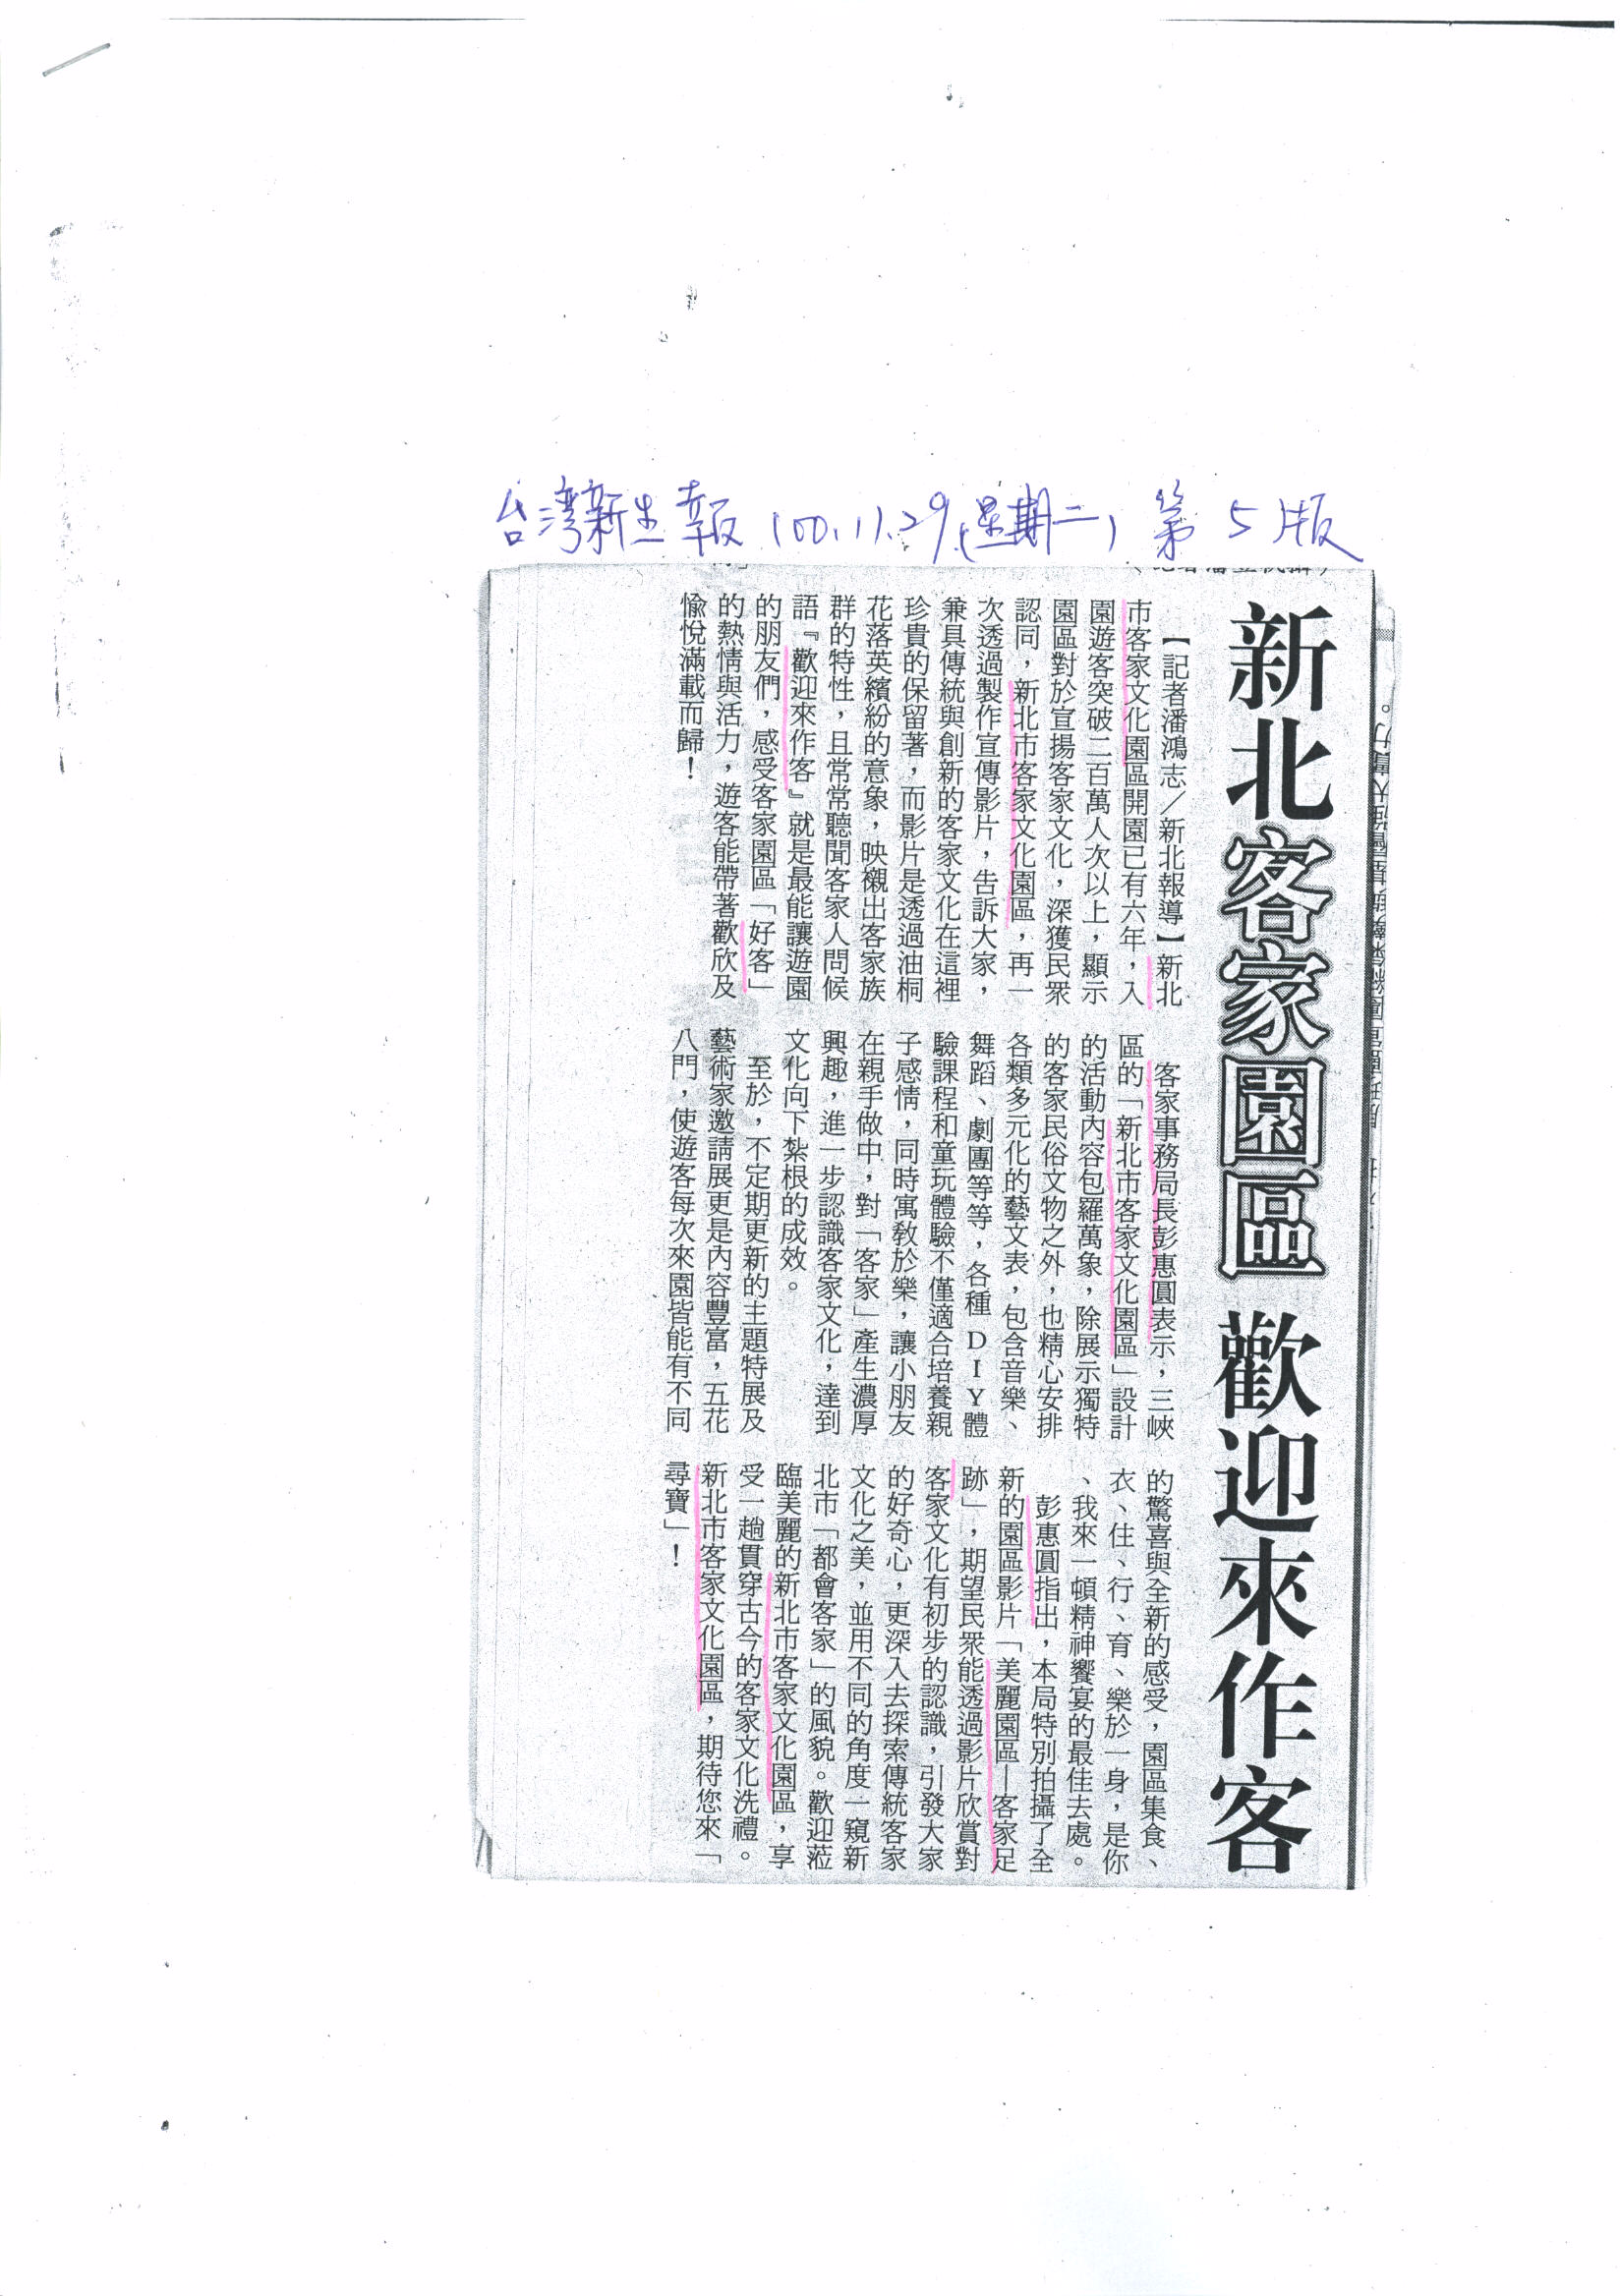 台灣新生報 100.11.29.(星期二) 第5版
新北客家園區 歡迎來作客
【記者潘鴻志／新北報導】新北
市客家文化園區開園已有六年，入
園遊客突破二百萬人次以上，顯示
園區對於宣揚客家文化，深獲民眾
認同，新北市客家文化園區，再一
次透過製作宣傳影片，告訴大家，
兼具傳統與創新的客家文化在這裡
珍貴的保留著，而影片是透過油桐
花落英繽紛的意象，映襯出客家族
群的特性，且常常聽聞客家人問候
語『歡迎來作客』就是最能讓遊園
的朋友們，感受客家園區「好客」
的熱情與活力，遊客能帶著歡欣及
愉悅滿載而歸！
客家事務局長彭惠圓表示，三峽
區的「新北市客家文化園區」設計
的活動內容包羅萬象，除展示獨特
的客家民俗文物之外，也精心安排
各類多元化的藝文表，包含音樂、
舞蹈、劇團等等，各種DIY體
驗課程和童玩體驗不僅適合培養親
子感情，同時寓教於樂，讓小朋友
在親手做中，對「客家」產生濃厚
興趣，進一步認識客家文化，達到
文化向下紮根的成效。
至於，不定期更新的主題特展及
藝術家邀請展更是內容豐富，五花
八門，使遊客每次來園皆能有不同
的驚喜與全新的感受，園區集食、
衣、住、行、育、樂於一身，是你
、我來一頓精神饗宴的最佳去處。
彭惠圓指出，本局特別拍攝了全
新的園區影片「美麗園區—客家足
跡」，期望民眾能透過影片欣賞對
客家文化有初步的認識，引發大家
的好奇心，更深入去探索傳統客家
文化之美，並用不同的角度一窺新
北市「都會客家」的風貌。歡迎蒞
臨美麗的新北市客家文化園區，享
受一趟貫穿古今的客家文化洗禮。
新北市客家文化園區，期待您來「
尋寶」！